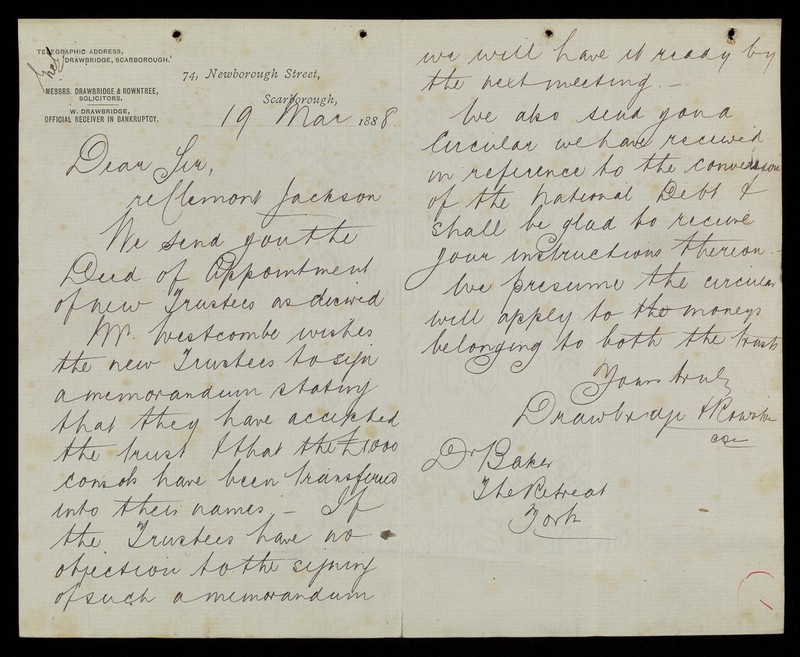 TELEGRAPHIC ADDRESS,
"DRAWBRIDGE, SCARBOROUGH."
MESSRS. DRAWBRIDGE & ROWNTREE,
SOLICITORS.
W. DRAWBRIDGE,
OFFICIAL RECEIVER IN BANKRUPTCY.
74, Newborough Street,
Scarborough,
19 Mar 1888.
Dear Sir,
re Clement Jackson
We send you the
Deed of Appointment
of new Trustees as desired
Mr. Westcombe wishes
the new Trustees to sign
a memorandum stating
that they have accepted
the trust & that the £1000
consols have been transferred
into their names. – If
the Trustees have no
objection to the signing
of such a memorandum
we will have it ready by
the next meeting. –
We also send you a
Circular we have received
in reference to the conversion
of the National Debt &
shall be glad to receive
your instructions thereon. –
We presume the circular
will apply to the moneys
belonging to both the trusts
Yours truly
Drawbridge & Rowntree
Dr Baker
The Retreat
York